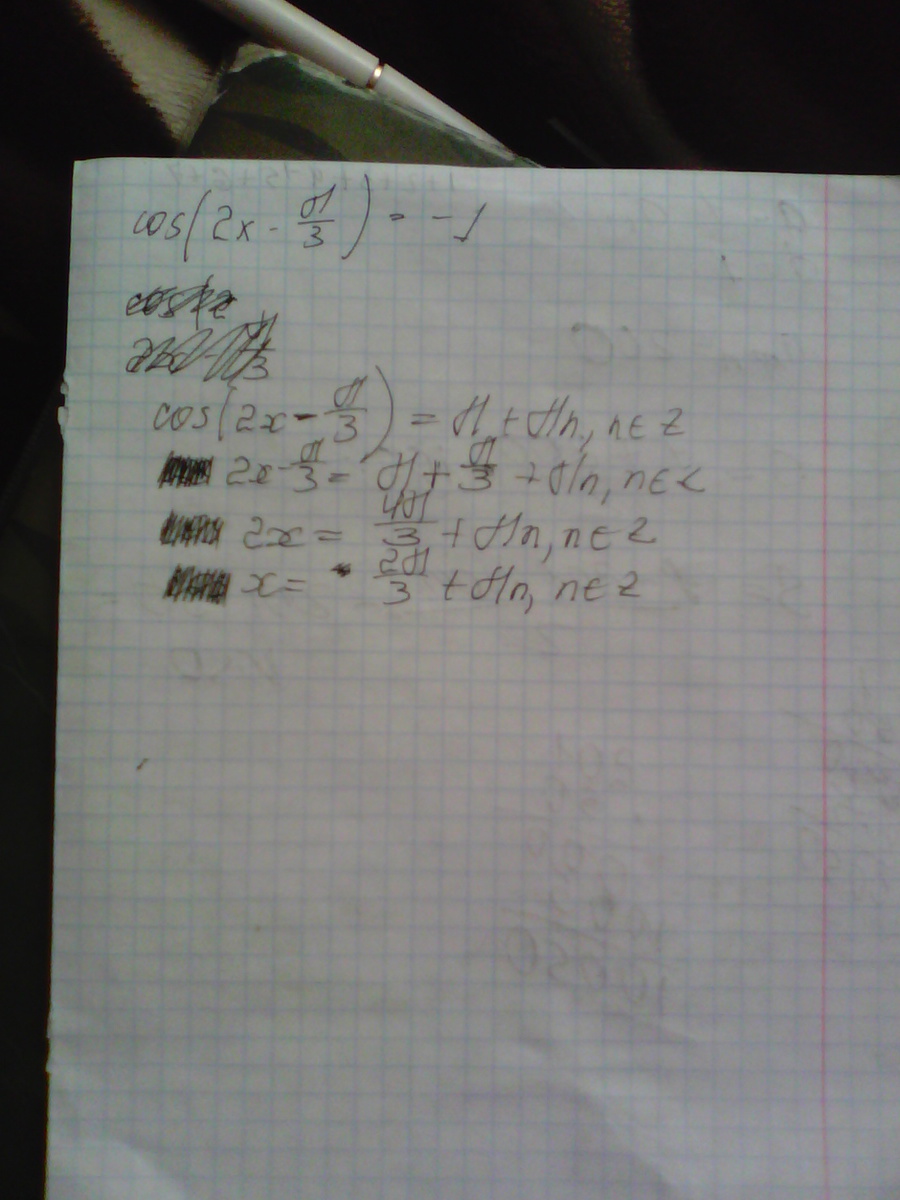 cos(2x - π/3) = -1
cos(2x - π/3) = π + πn, n∈Z
2x - π/3 = π + π/3 + πn, n∈Z
2x = 4π/3 + πn, n∈Z
x = 2π/3 + πn, n∈Z